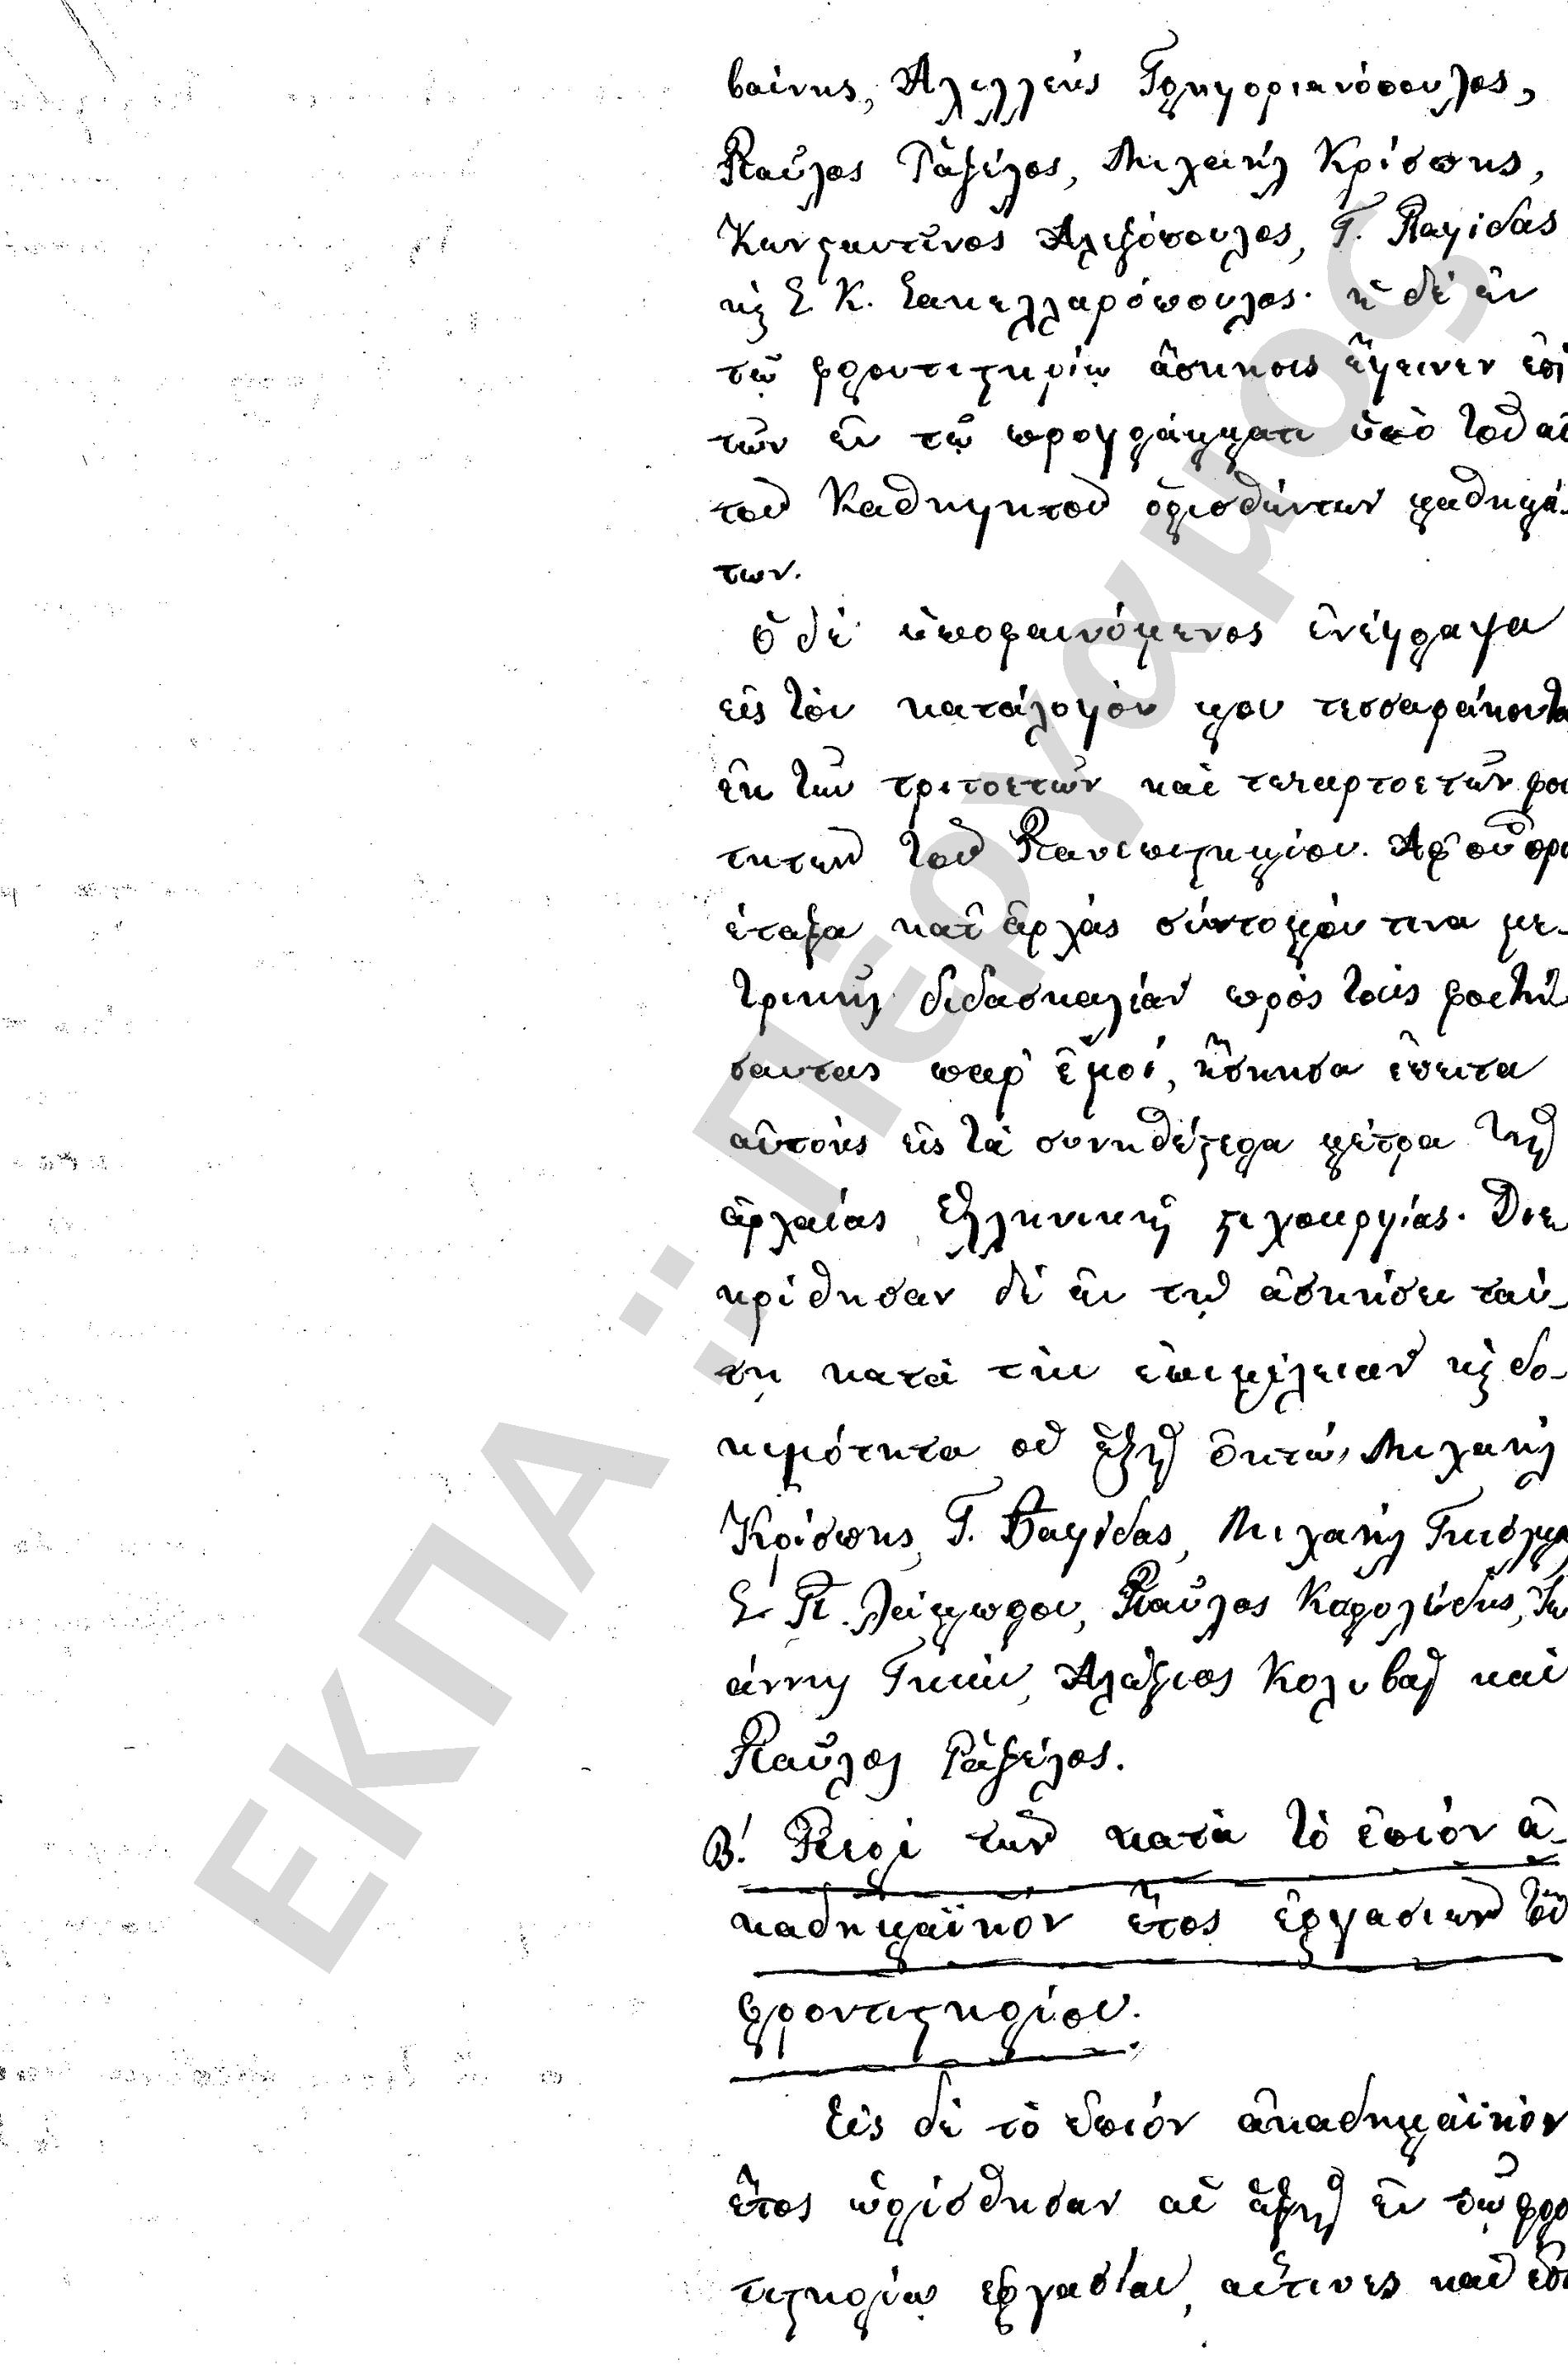 βαίνης, Ἀχιλλεύς Γρηγοριανόπουλος,
Παῦλος Ῥάζέλος, Μιχαήλ Κρίσπης,
Κωνσταντῖνος Ἀλεξόπουλος, Γ. Παγίδας
κ Σ Κ. Σακελλαρόπουλος· ἡ δέ ἐν
τῷ φροντιστηρίῳ ἄσκησις ἔγεινεν ἐπί
τῶν ἐν τῷ προγράμματι ὑπό τοῦ αὐ
τοῦ Καθηγητοῦ ὁρισθέντων μαθημά-
των.
Ὁ δέ ὑποφαινόμενος ἐνέγραψα
εἰς τόν κατάλογόν μου τεσσαράκοντα
ἐκ τῶν τριτοετῶν καί τεταρτοετῶν φοι
τητῶν τοῦ Πανεπιστημίου. Ἀφ' οὗ προ
έταξα κατ' ἀρχάς σύντομόν τινα με-
τρικήν διδασκαλίαν πρός τούς φοιτή
σαντας παρ' ἐμοί, ἤσκησα ἔπειτα
αὐτούς εἰς τά συνηθέστερα μέτρα τῆς
ἀρχαίας Ἑλληνικῆς στιχουργίας. Διε
κρίθησαν δέ ἐν τῇ ἀσκήσει ταύ-
τῃ κατά τήν ἐπιμέλειαν κ δο-
κιμότητα οἱ ἑξῆς ὀκτώ, Μιχαήλ
Κρίσπης, Γ. Παγίδας, Μιχαήλ
Σ. Π. Λάμπρου, Παῦλος Καρολίδης, Ἰω
άννης Γκίκα, Ἀλέξιος Κολυβᾶς καί
Παῦλος Ῥάζέλος.
Β! Περί τῶν κατά τό ἐπιόν ἀ-
καδημαϊκόν ἔτος ἐργασιῶν τοῦ
φροντιστηρίου.
Εἰς δέ τό ἐπιόν ἀκαδημαϊκόν
ἔτος ὡρίσθησαν αἱ ἑξῆς ἐν τῷ φρο
τιστηρίῳ ἐργασίαι, αἵτινες καί ἐδη
ΕΚΠΑ: Πέργαμος